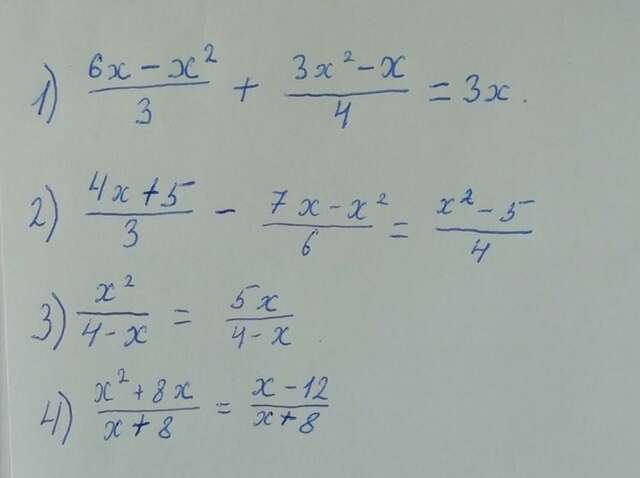 1) (6x - x²)/3 + (3x² - x)/4 = 3x.
2) (4x + 5)/3 - (7x - x²)/6 = (x² - 5)/4
3) x²/(4 - x) = 5x/(4 - x)
4) (x² + 8x)/(x + 8) = (x - 12)/(x + 8)